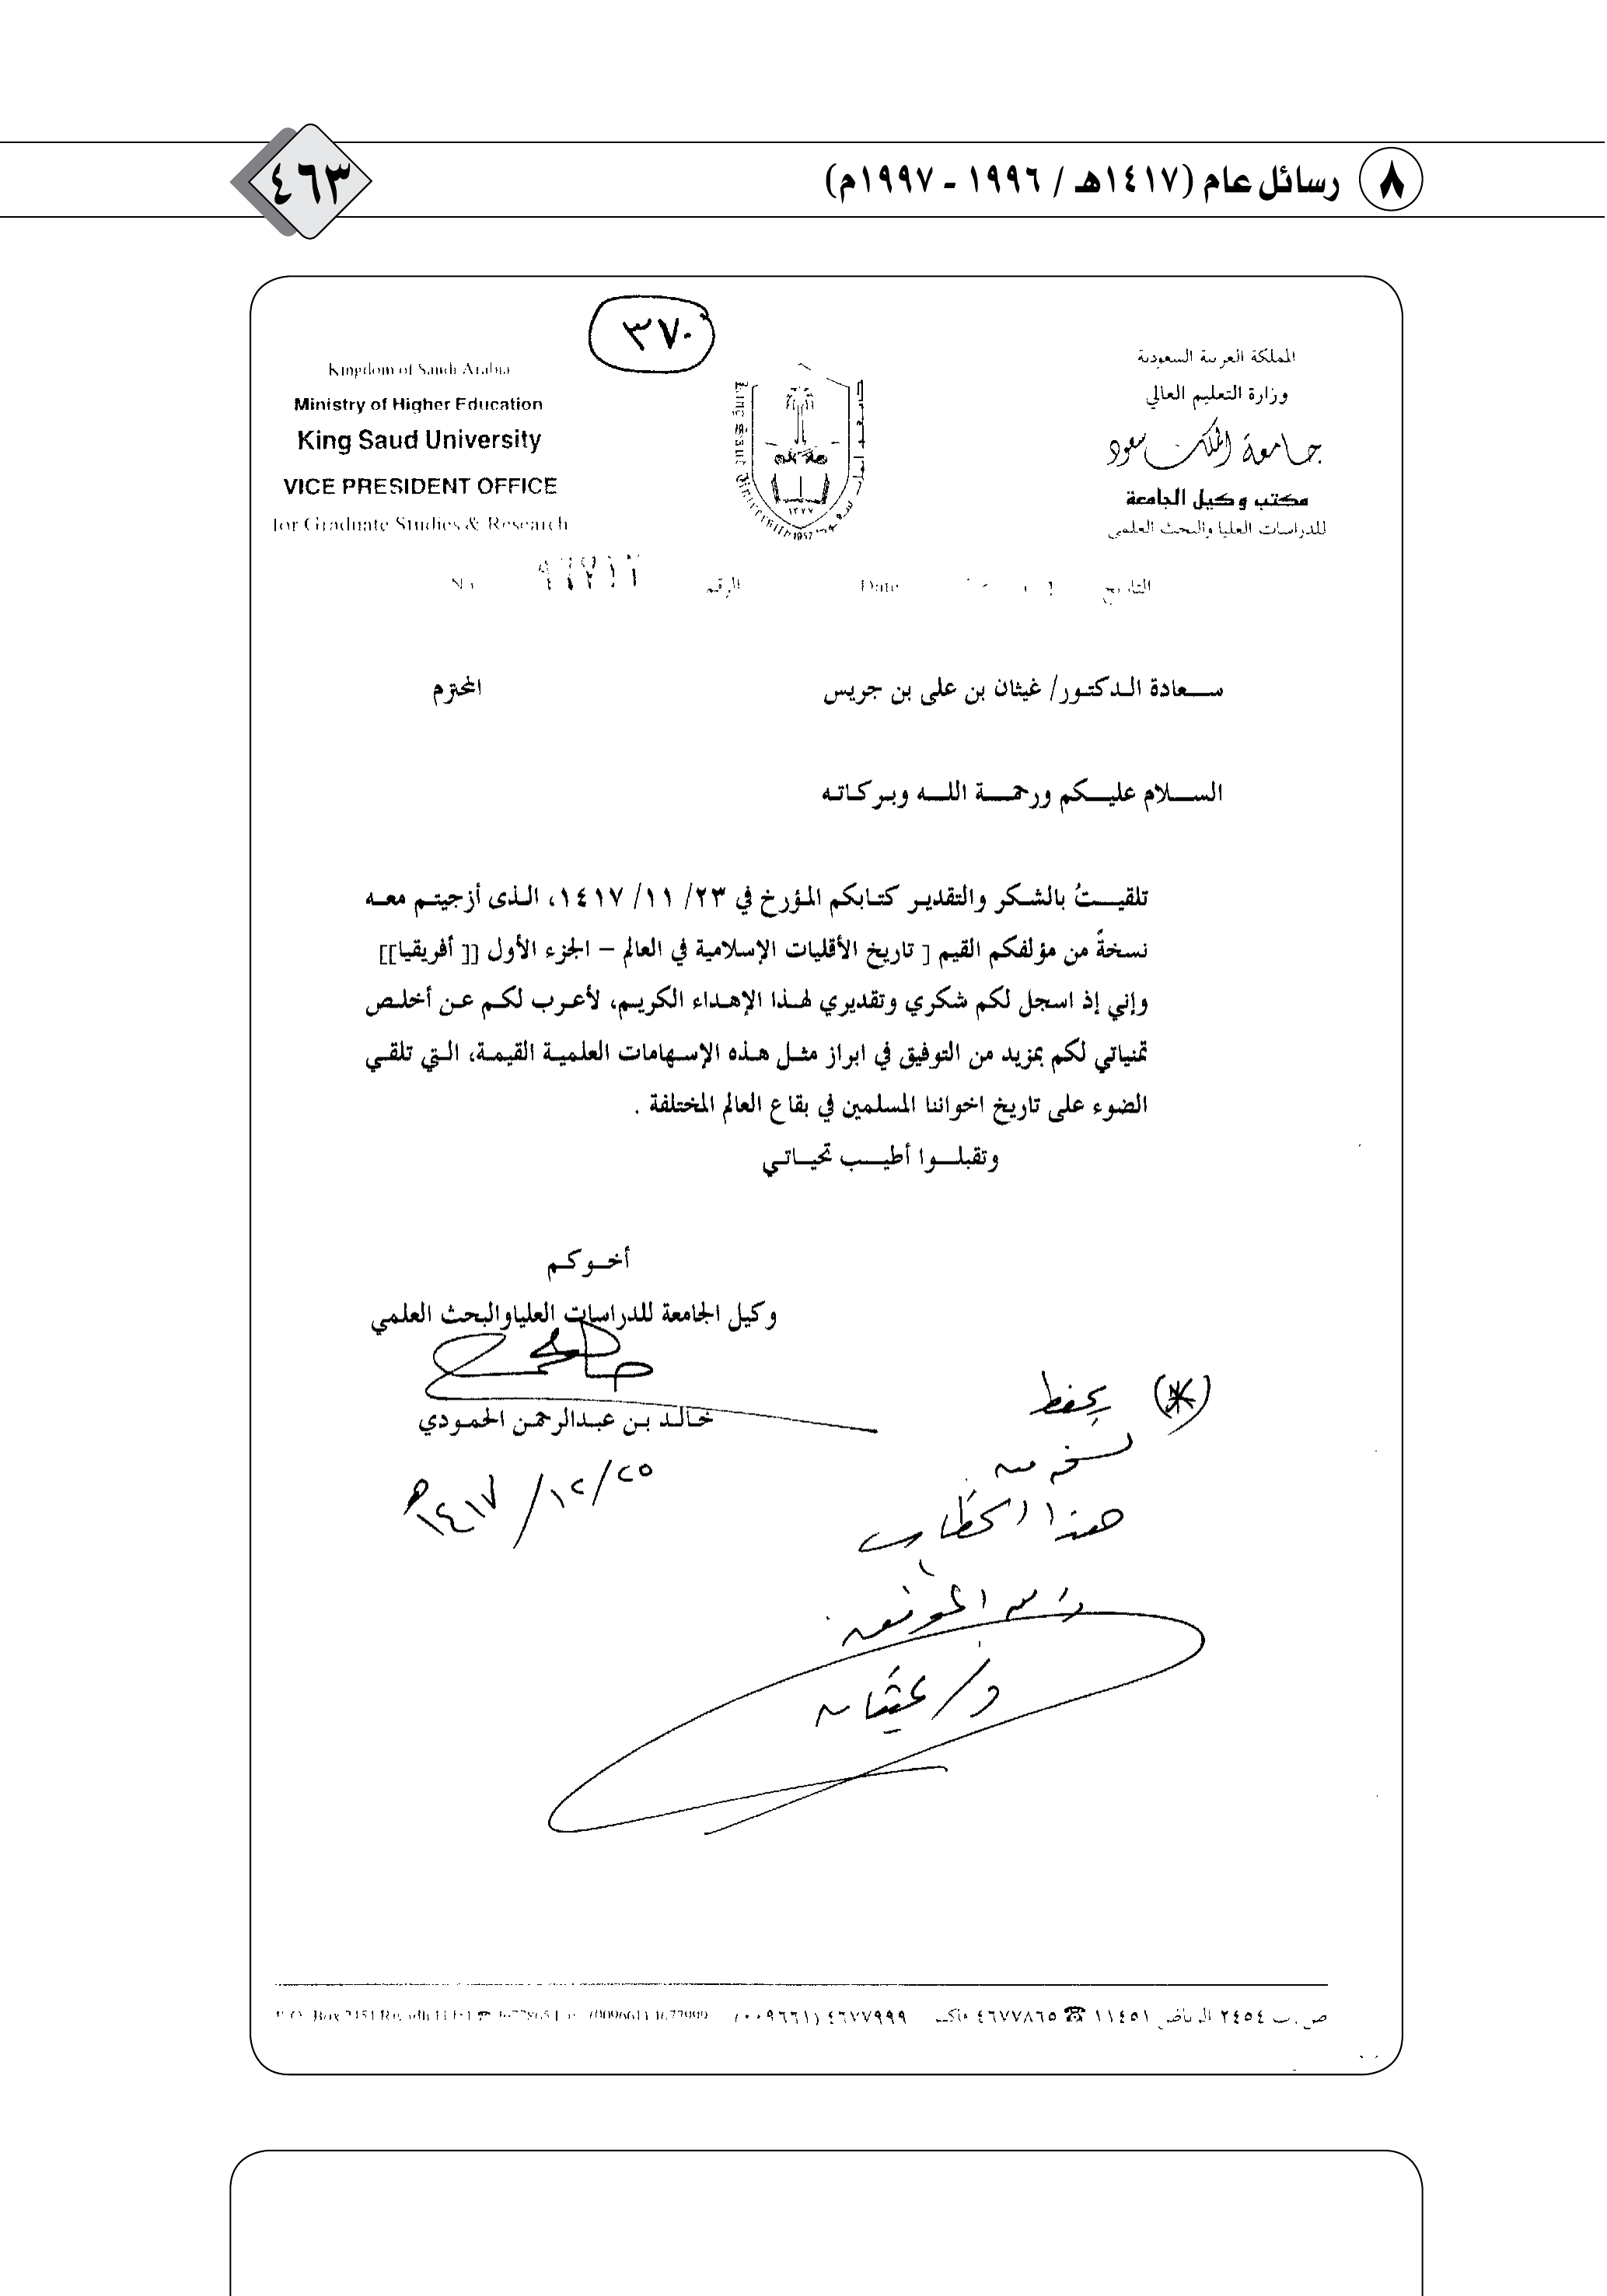 ٨ رسائل عام (١٤١٧هـ / ١٩٩٦ - ١٩٩٧م)
٤٦٣
٣٧٠
المملكة العربية السعودية
وزارة التعليم العالي
جامعة الملك سعود
مكتب وكيل الجامعة
للدراسات العليا والبحث العلمي
Kingdom of Saudi Arabia
Ministry of Higher Education
King Saud University
VICE PRESIDENT OFFICE
for Graduate Studies & Research
King Saud University
جامعة الملك سعود
١٣٧٧
1957
التاريخ Date الرقم
سعادة الدكتور/ غيثان بن على بن جريس المحترم
السلام عليكم ورحمة الله وبركاته
تلقيتُ بالشكر والتقدير كتابكم المؤرخ في ٢٣/ ١١/ ١٤١٧، الذى أزجيتم معه
نسخةً من مؤلفكم القيم [ تاريخ الأقليات الإسلامية في العالم – الجزء الأول [[ أفريقيا]]
وإني إذ اسجل لكم شكري وتقديري لهذا الإهداء الكريم، لأعرب لكم عن أخلص
تمنياتي لكم بمزيد من التوفيق في ابراز مثل هذه الإسهامات العلمية القيمة، التي تلقي
الضوء على تاريخ اخواننا المسلمين في بقاع العالم المختلفة .
وتقبلوا أطيب تحياتي
أخوكم
وكيل الجامعة للدراسات العلياوالبحث العلمي
خالد بن عبدالرحمن الحمودي
٢٥/١٢/١٤١٧هـ
(*) يحفظ
نسخه من
هذا الخطاب
د/ غيثان
ص.ب ٢٤٥٤ الرياض ١١٤٥١ ☎ ٤٦٧٧٨٦٥ فاكس ٤٦٧٧٩٩٩ (٠٠٩٦٦١)